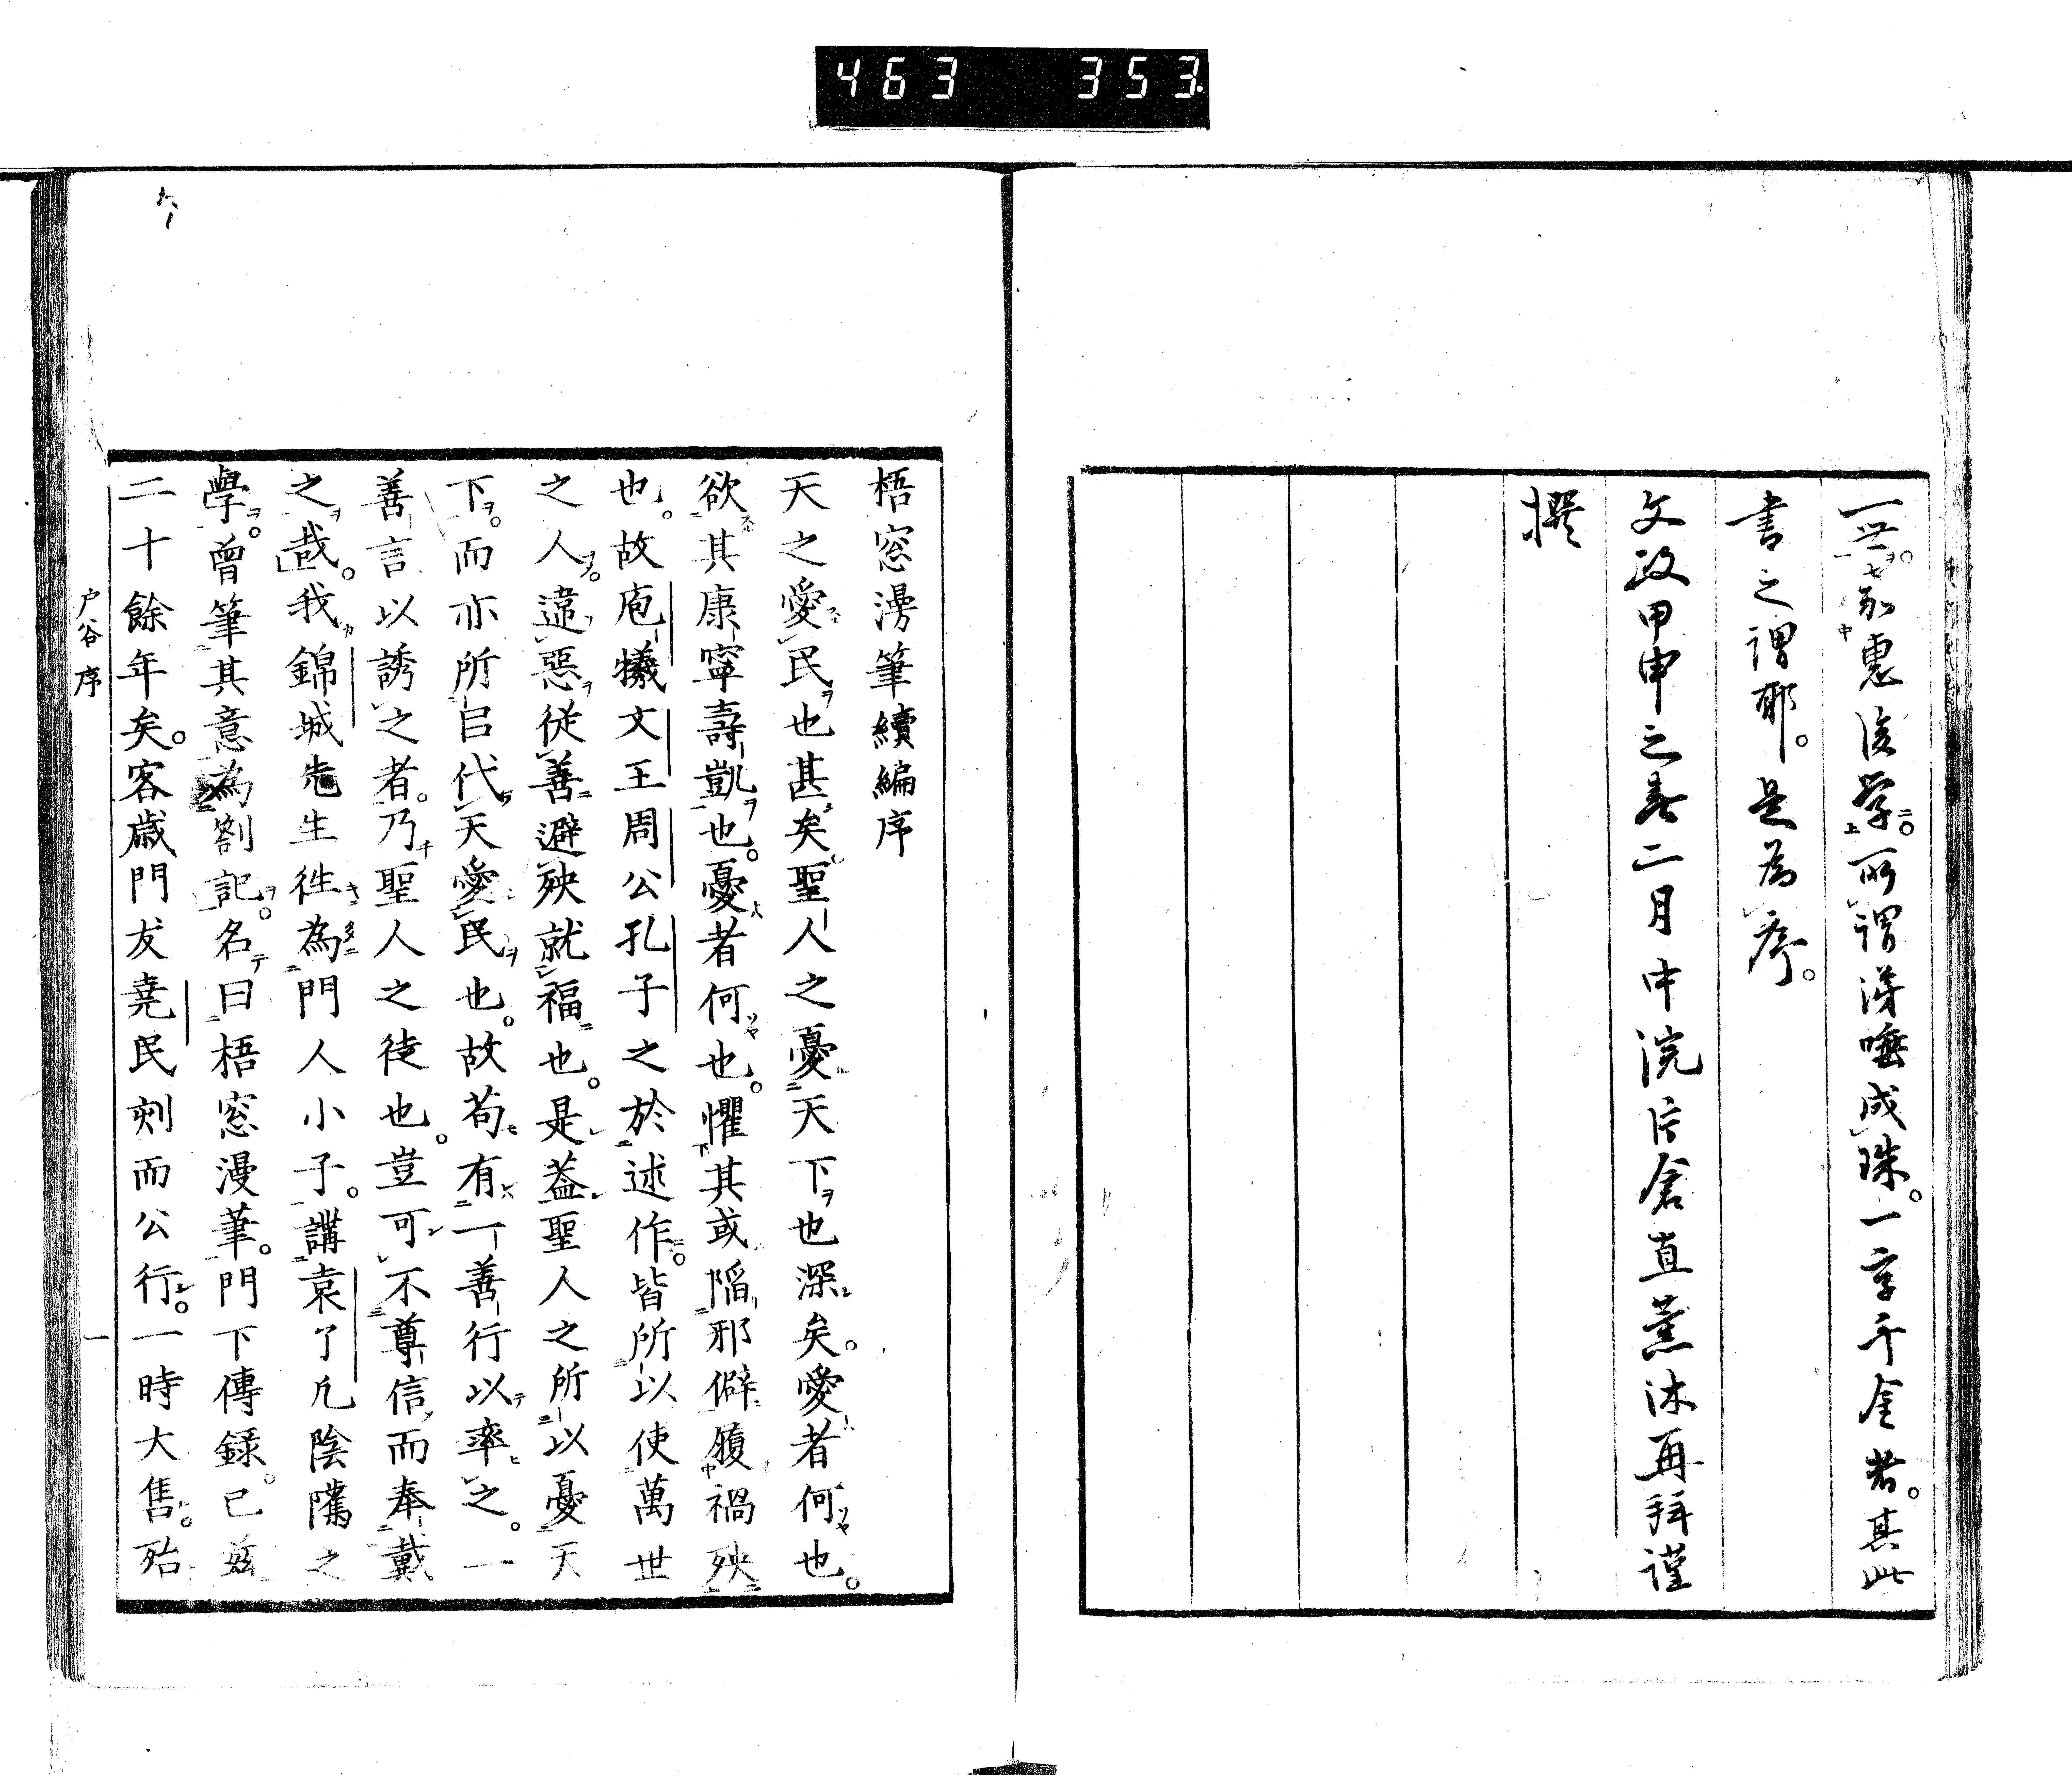 463 353
一世。亦惠後学。所謂涕唾成珠。一字千金者。其此
書之謂耶。是為序。
文政甲申之春二月中浣片倉直薰沐再拜謹
撰
梧窓漫筆續編序
天之愛民也甚矣聖人之憂天下也深矣。愛者何也。
欲其康寧壽凱也。憂者何也。懼其或陷邪僻履禍殃
也。故庖犧文王周公孔子之於述作。皆所以使萬世
之人。違惡從善避殃就福也。是葢聖人之所以憂天
下。而亦所㠯代天愛民也。故苟有一善行以率之。一
善言以誘之者。乃聖人之徒也。豈可不尊信而奉戴
之哉。我錦城先生徃為門人小子。講袁了凡陰隲之
學。曾筆其意為劄記。名曰梧窓漫筆。門下傳録。已玆
二十餘年矣。客歳門友堯民刻而公行。一時大售。殆
戸谷 序
一